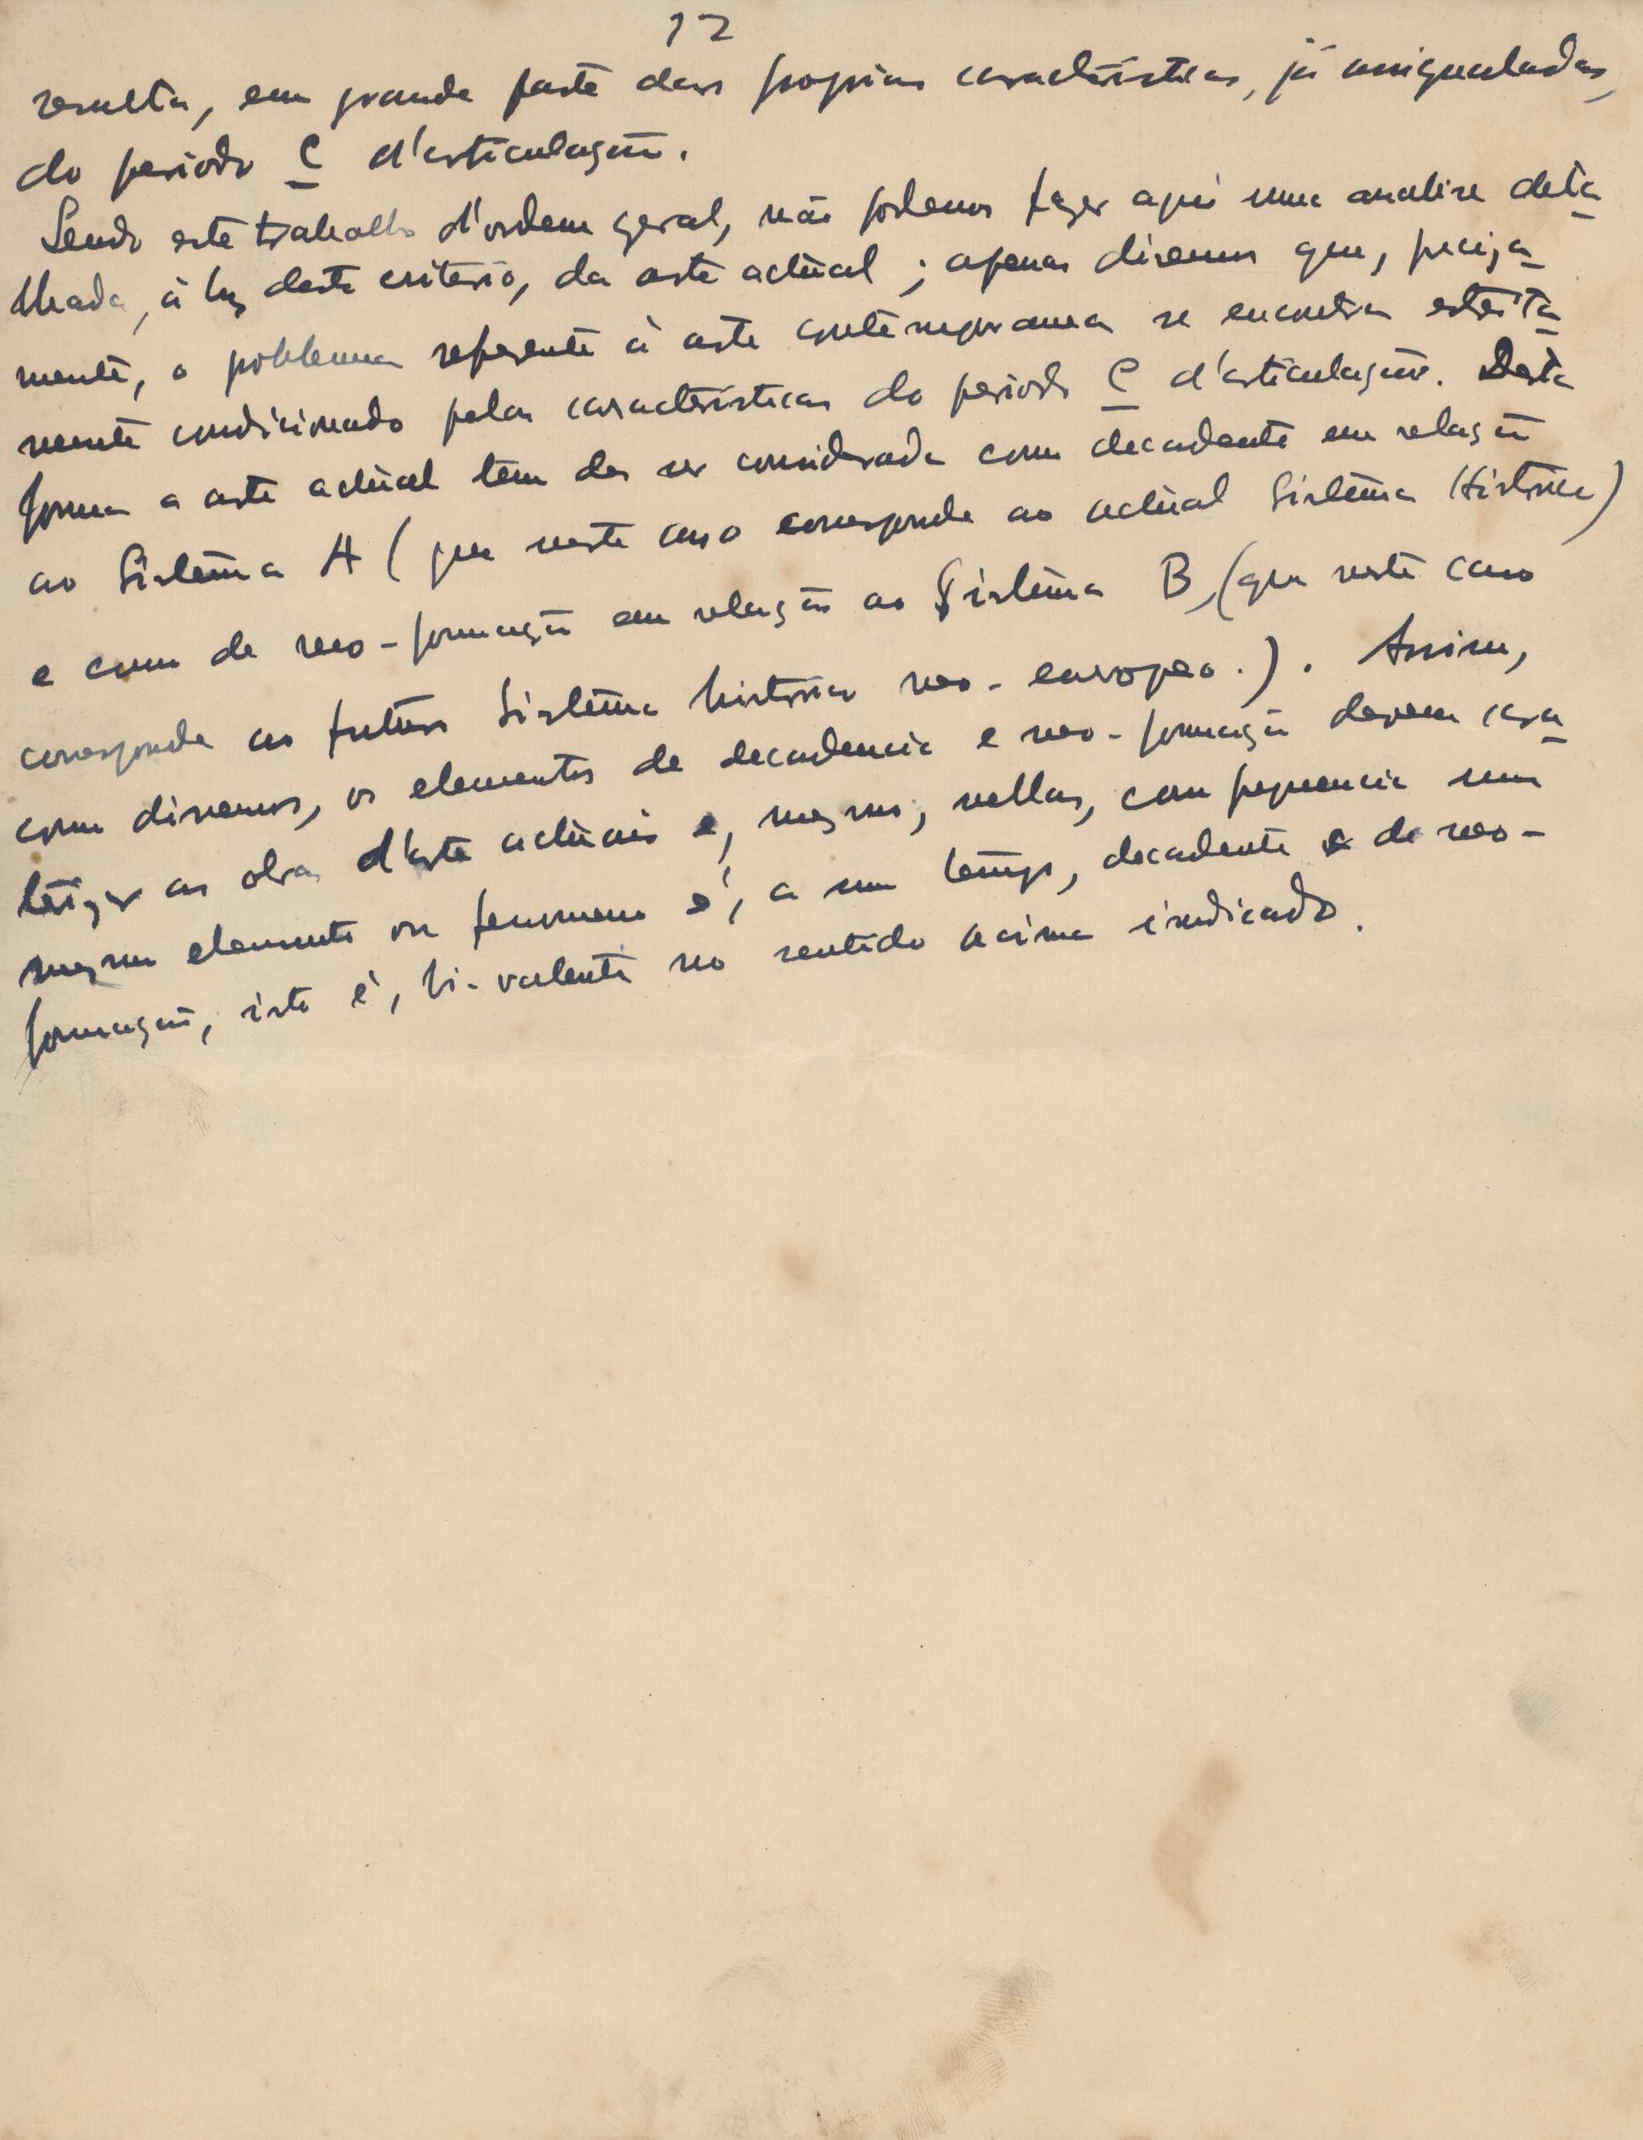 12
resulta, em grande parte das proprias caracteristicas, já assignaladas,
do periodo C d'articulação.
Sendo este trabalho d'ordem geral, não podemos fazer aqui uma analise deta
lhada, à luz deste criterio, da arte actual; apenas diremos que, preciza
mente, o problema referente à arte contemporanea se encontra estreita
mente condicionado pelas caracteristicas do periodo C d'articulação. Desta
forma a arte actual tem de ser considerada como decadente em relação
ao Sistema A (que neste caso corresponde ao actual Sistema Historico)
e como de neo-formação em relação ao Sistema B, (que neste caso
corresponde ao futuro Sistema historico neo-europeo.). Assim,
como dissemos, os elementos de decadencia e neo-formação devem cara
terizar as obras d'arte actuais e, mesmo, nellas, com frequencia um
mesmo elemento ou fenomeno é, a um tempo, decadente e de neo-
formação, isto é, bi-valente no sentido acima indicado.